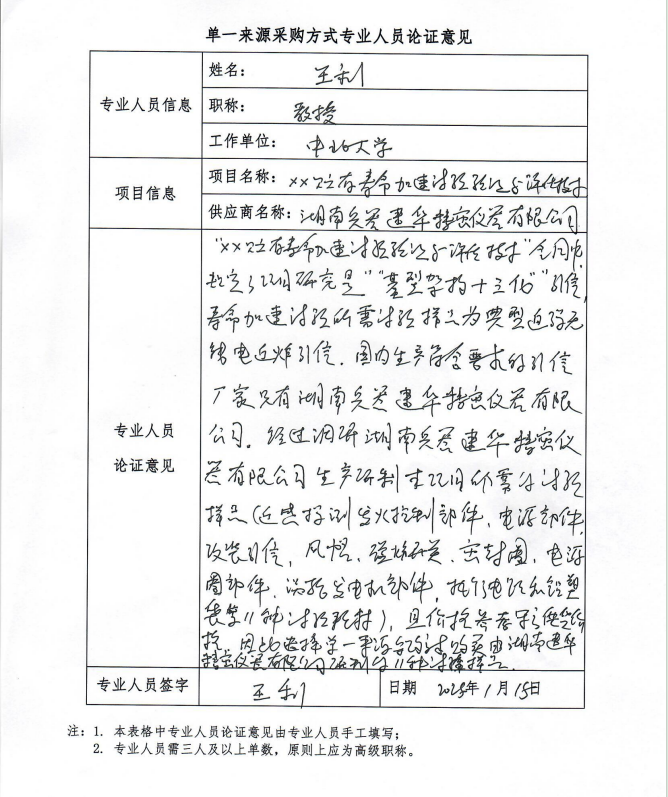 单一来源采购方式专业人员论证意见
专业人员信息
姓名： 王利
职称： 教授
工作单位： 中北大学
项目信息
项目名称：××贮存寿命加速试验验证与评估技术
供应商名称：湖南兵器建华精密仪器有限公司
专业人员
论证意见
"××贮存寿命加速试验验证与评估技术"合同中
规定了项目研究是""基型架构十三化"引信
寿命加速试验所需试验样品为典型迫弹无
线电近炸引信，国内生产符合要求的引信
厂家只有湖南兵器建华精密仪器有限
公司。经过调研湖南兵器建华精密仪
器有限公司生产研制本项目所需的试验
样品（近炸探测发火控制部件、电源部件、
改装引信、风帽、磁烧开关、密封圈、电源
圈部件、涡轮发电机部件、执行电路和铝塑
袋等11种试验器材），且价格
因此选择单一来源由湖南建华
精密仪器有限公司研制的11种试验样品。
专业人员签字 王利 日期 2025年1月15日
注：1. 本表格中专业人员论证意见由专业人员手工填写；
2. 专业人员需三人及以上单数，原则上应为高级职称。